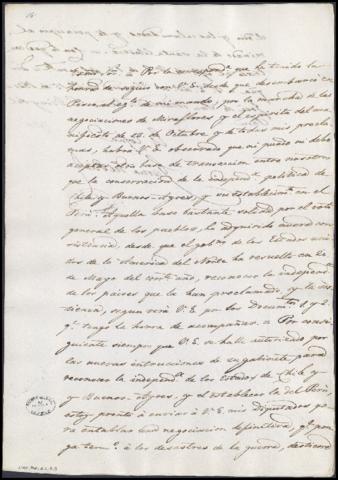 Por la correspond.ª que he tenido la
honra de seguir con V.E. desde que desembarcó en
Pisco el ejto. de mi mando, por la marcha de las
negociaciones de Miraflores, y el espiritu del ma-
nifiesto de 13 de Octubre y de todas mis procla-
mas, habrá V.E. observado que no puedo ni debo
aceptar otra base de transaccion entre nosotros
que la conservacion de la independ.ª politica de
Chile y Buenos-Ayres, y su establecim.to en el
Perú. Aquella base bastante solida por el voto
general de los pueblos, ha adquirido nueva con-
sistencia, desde que el gob.no de los Estados uni-
dos de la America del Norte ha resuelto en
de Mayo del corr.te año, reconocer la independ.ª
de los paises que la han proclamado, y la sos-
tienen, segun verá V.E. por los Docum.tos 1 y 2
q.e tengo la honra de acompañar. Por consi-
guiente siempre que V.E. se halle autorizado por
las nuevas intrucciones de su gabinete, para
reconocer la independ.ª de los Estados de Chile y
Buenos-Ayres, y el establecer la del Perú,
estoy pronto á enviar á V.E. mis diputados pa-
ra entablar una negociacion definitiva, q.e pon-
ga term.º á los desastres de la guerra, destruend